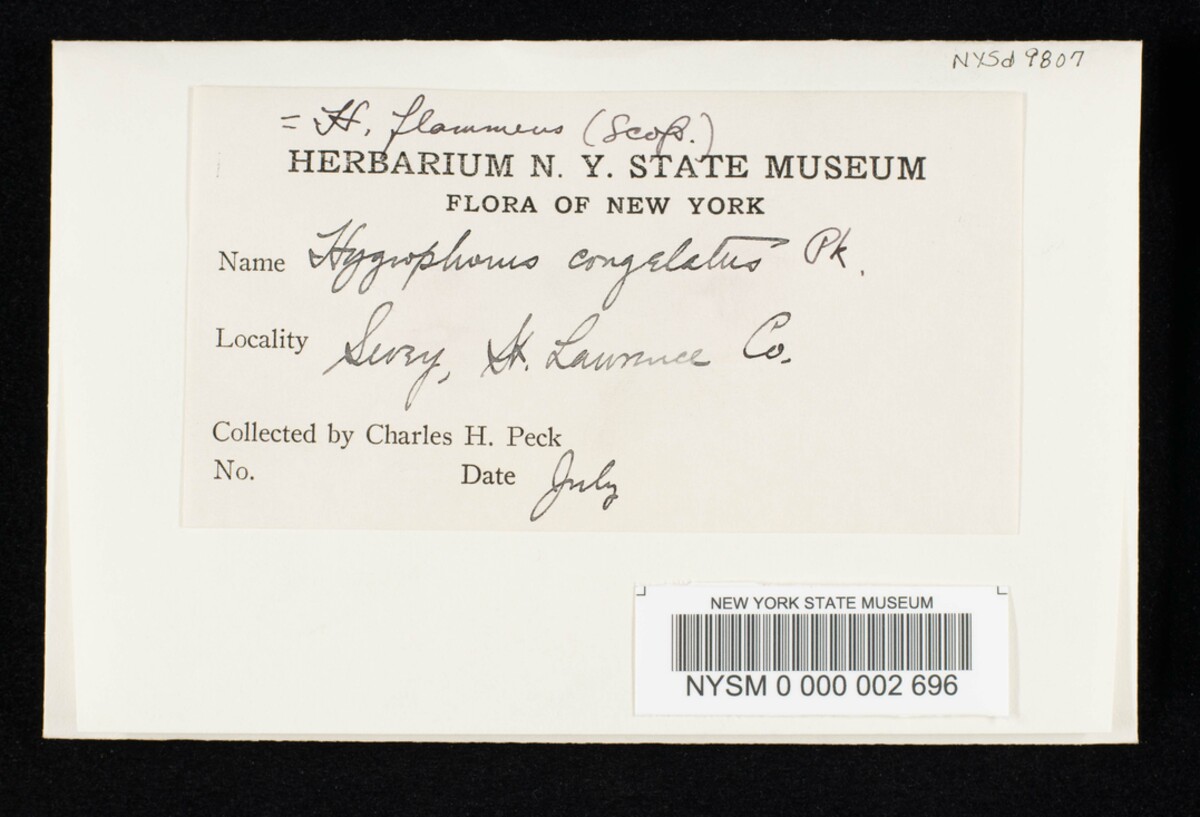 NYSd 9807
= H. flammeus (Scop.)
HERBARIUM N. Y. STATE MUSEUM
FLORA OF NEW YORK
Name Hygrophorus congelatus Pk.
Locality Sevey, St. Lawrence Co.
Collected by Charles H. Peck
No. Date July
NEW YORK STATE MUSEUM
NYSM 0 000 002 696